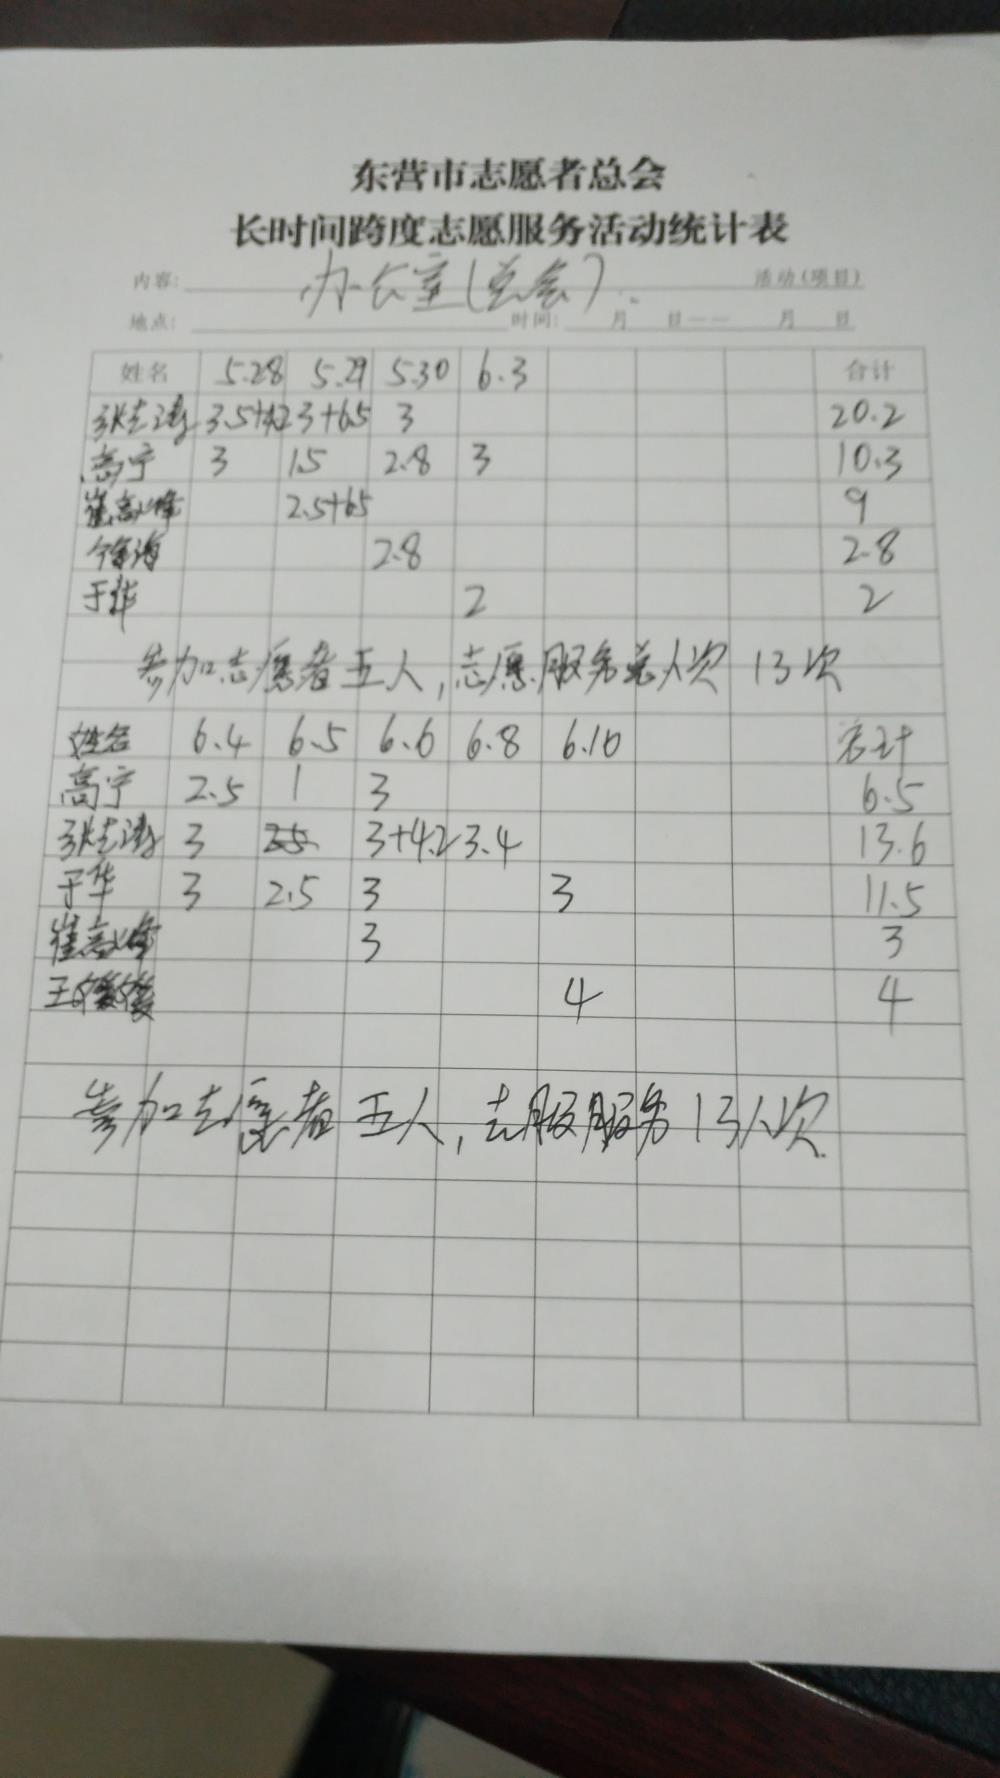 东营市志愿者总会
长时间跨度志愿服务活动统计表
内容: 办公室(总会). 活动(项目)
地点: 时间: 月 日—— 月 日
姓名 5.28 5.29 5.30 6.3 合计
张志涛 3.5+4.2 3+6.5 3 20.2
高宁 3 1.5 2.8 3 10.3
崔高峰 2.5+6.5 9
2.8 2.8
于华 2 2
参加志愿者五人,志愿服务总人次 13次
姓名 6.4 6.5 6.6 6.8 6.10 总计
高宁 2.5 1 3 6.5
张志涛 3 3+4.2 3.4 13.6
于华 3 2.5 3 3 11.5
崔高峰 3 3
王 4 4
参加志愿者五人,志服服务13人次.